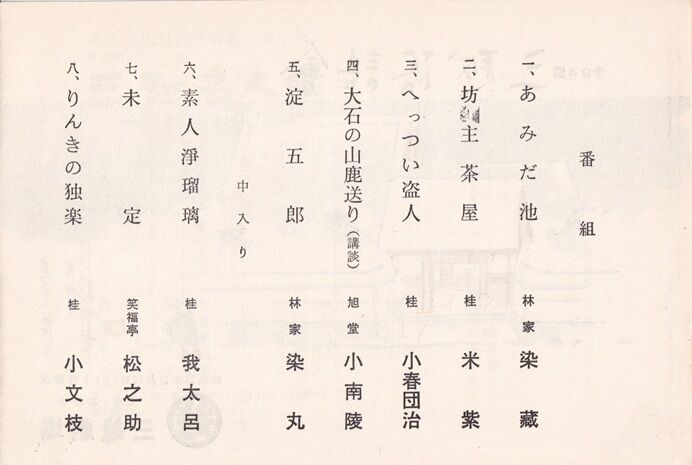 番組
一、あみだ池 林家 染蔵
二、坊主茶屋 桂 米紫
三、へっつい盗人 桂 小春団治
四、大石の山鹿送り（講談） 旭堂 小南陵
五、淀五郎 林家 染丸
中入り
六、素人浄瑠璃 桂 我太呂
七、未定 笑福亭 松之助
八、りんきの独楽 桂 小文枝